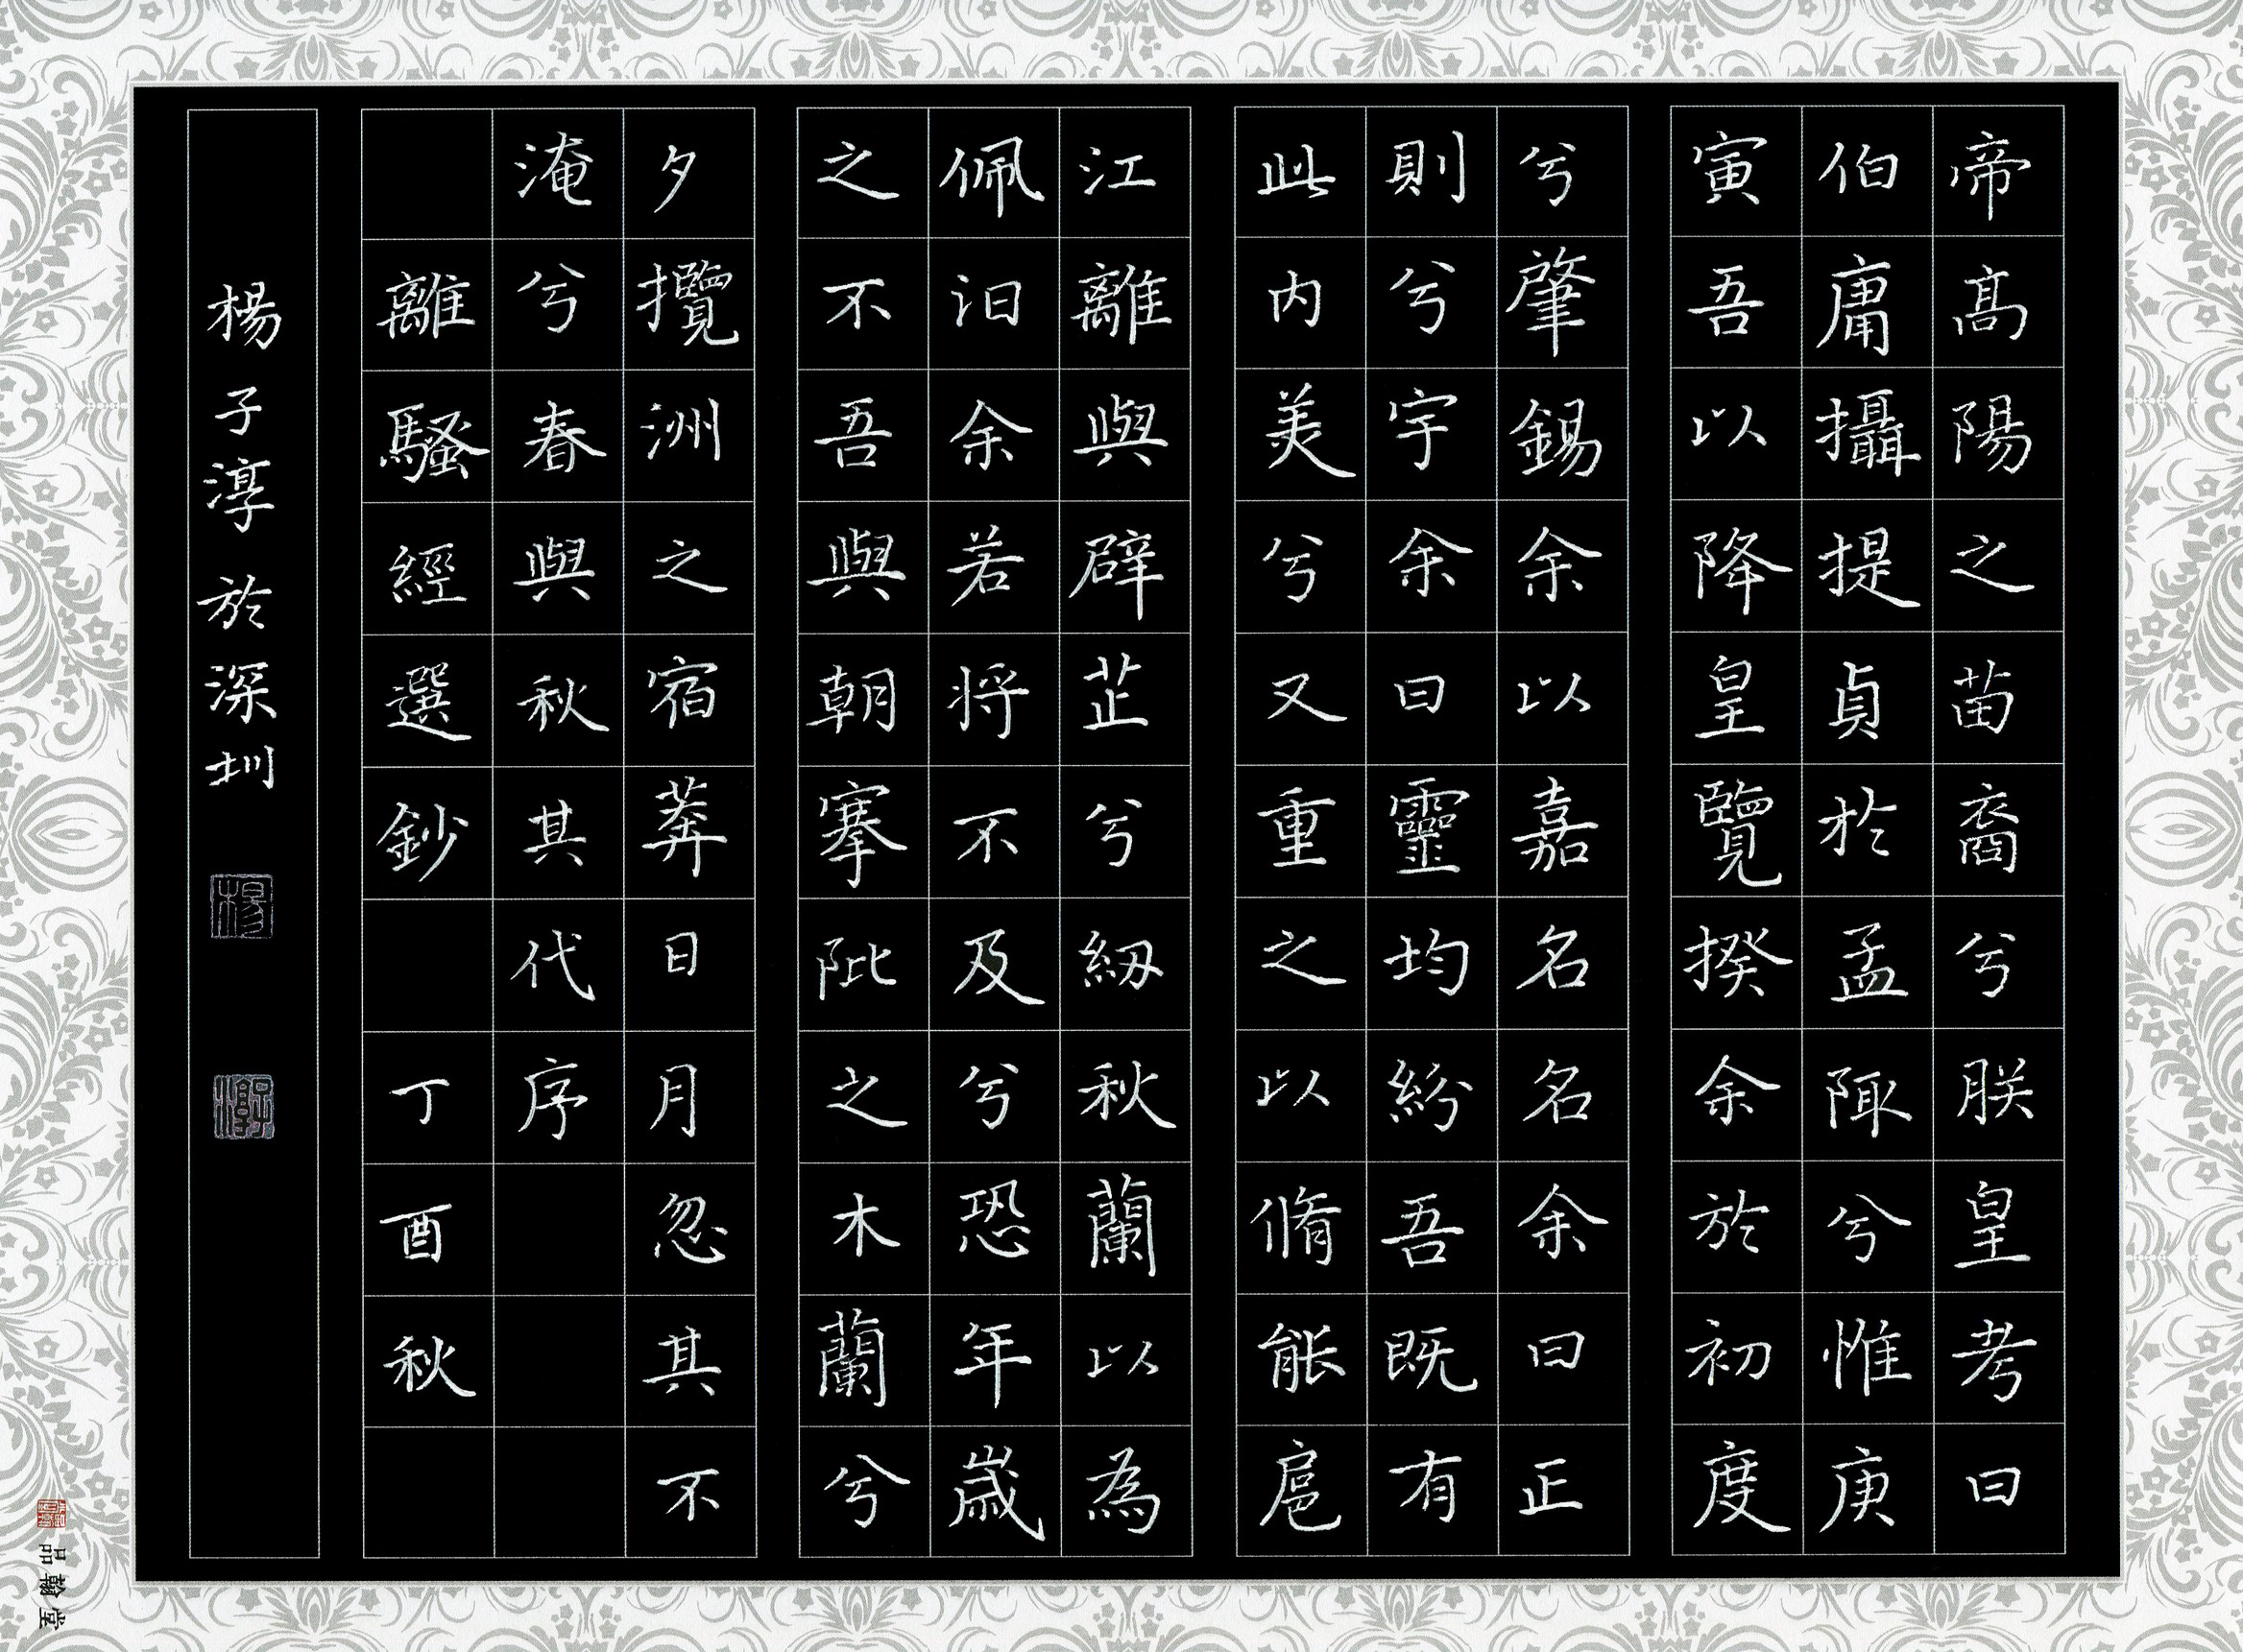 帝髙陽之苗裔兮朕皇考曰
伯庸攝提貞於孟陬兮惟庚
寅吾以降皇覽揆余於初度
兮肇錫余以嘉名名余曰正
則兮字余曰靈均紛吾既有
此内美兮又重之以脩能扈
江離與辟芷兮紉秋蘭以為
佩汩余若将不及兮恐年歲
之不吾與朝搴阰之木蘭兮
夕攬洲之宿莽日月忽其不
淹兮春與秋其代序
離騷經選鈔 丁酉秋
楊子淳於深圳
楊
品翰堂